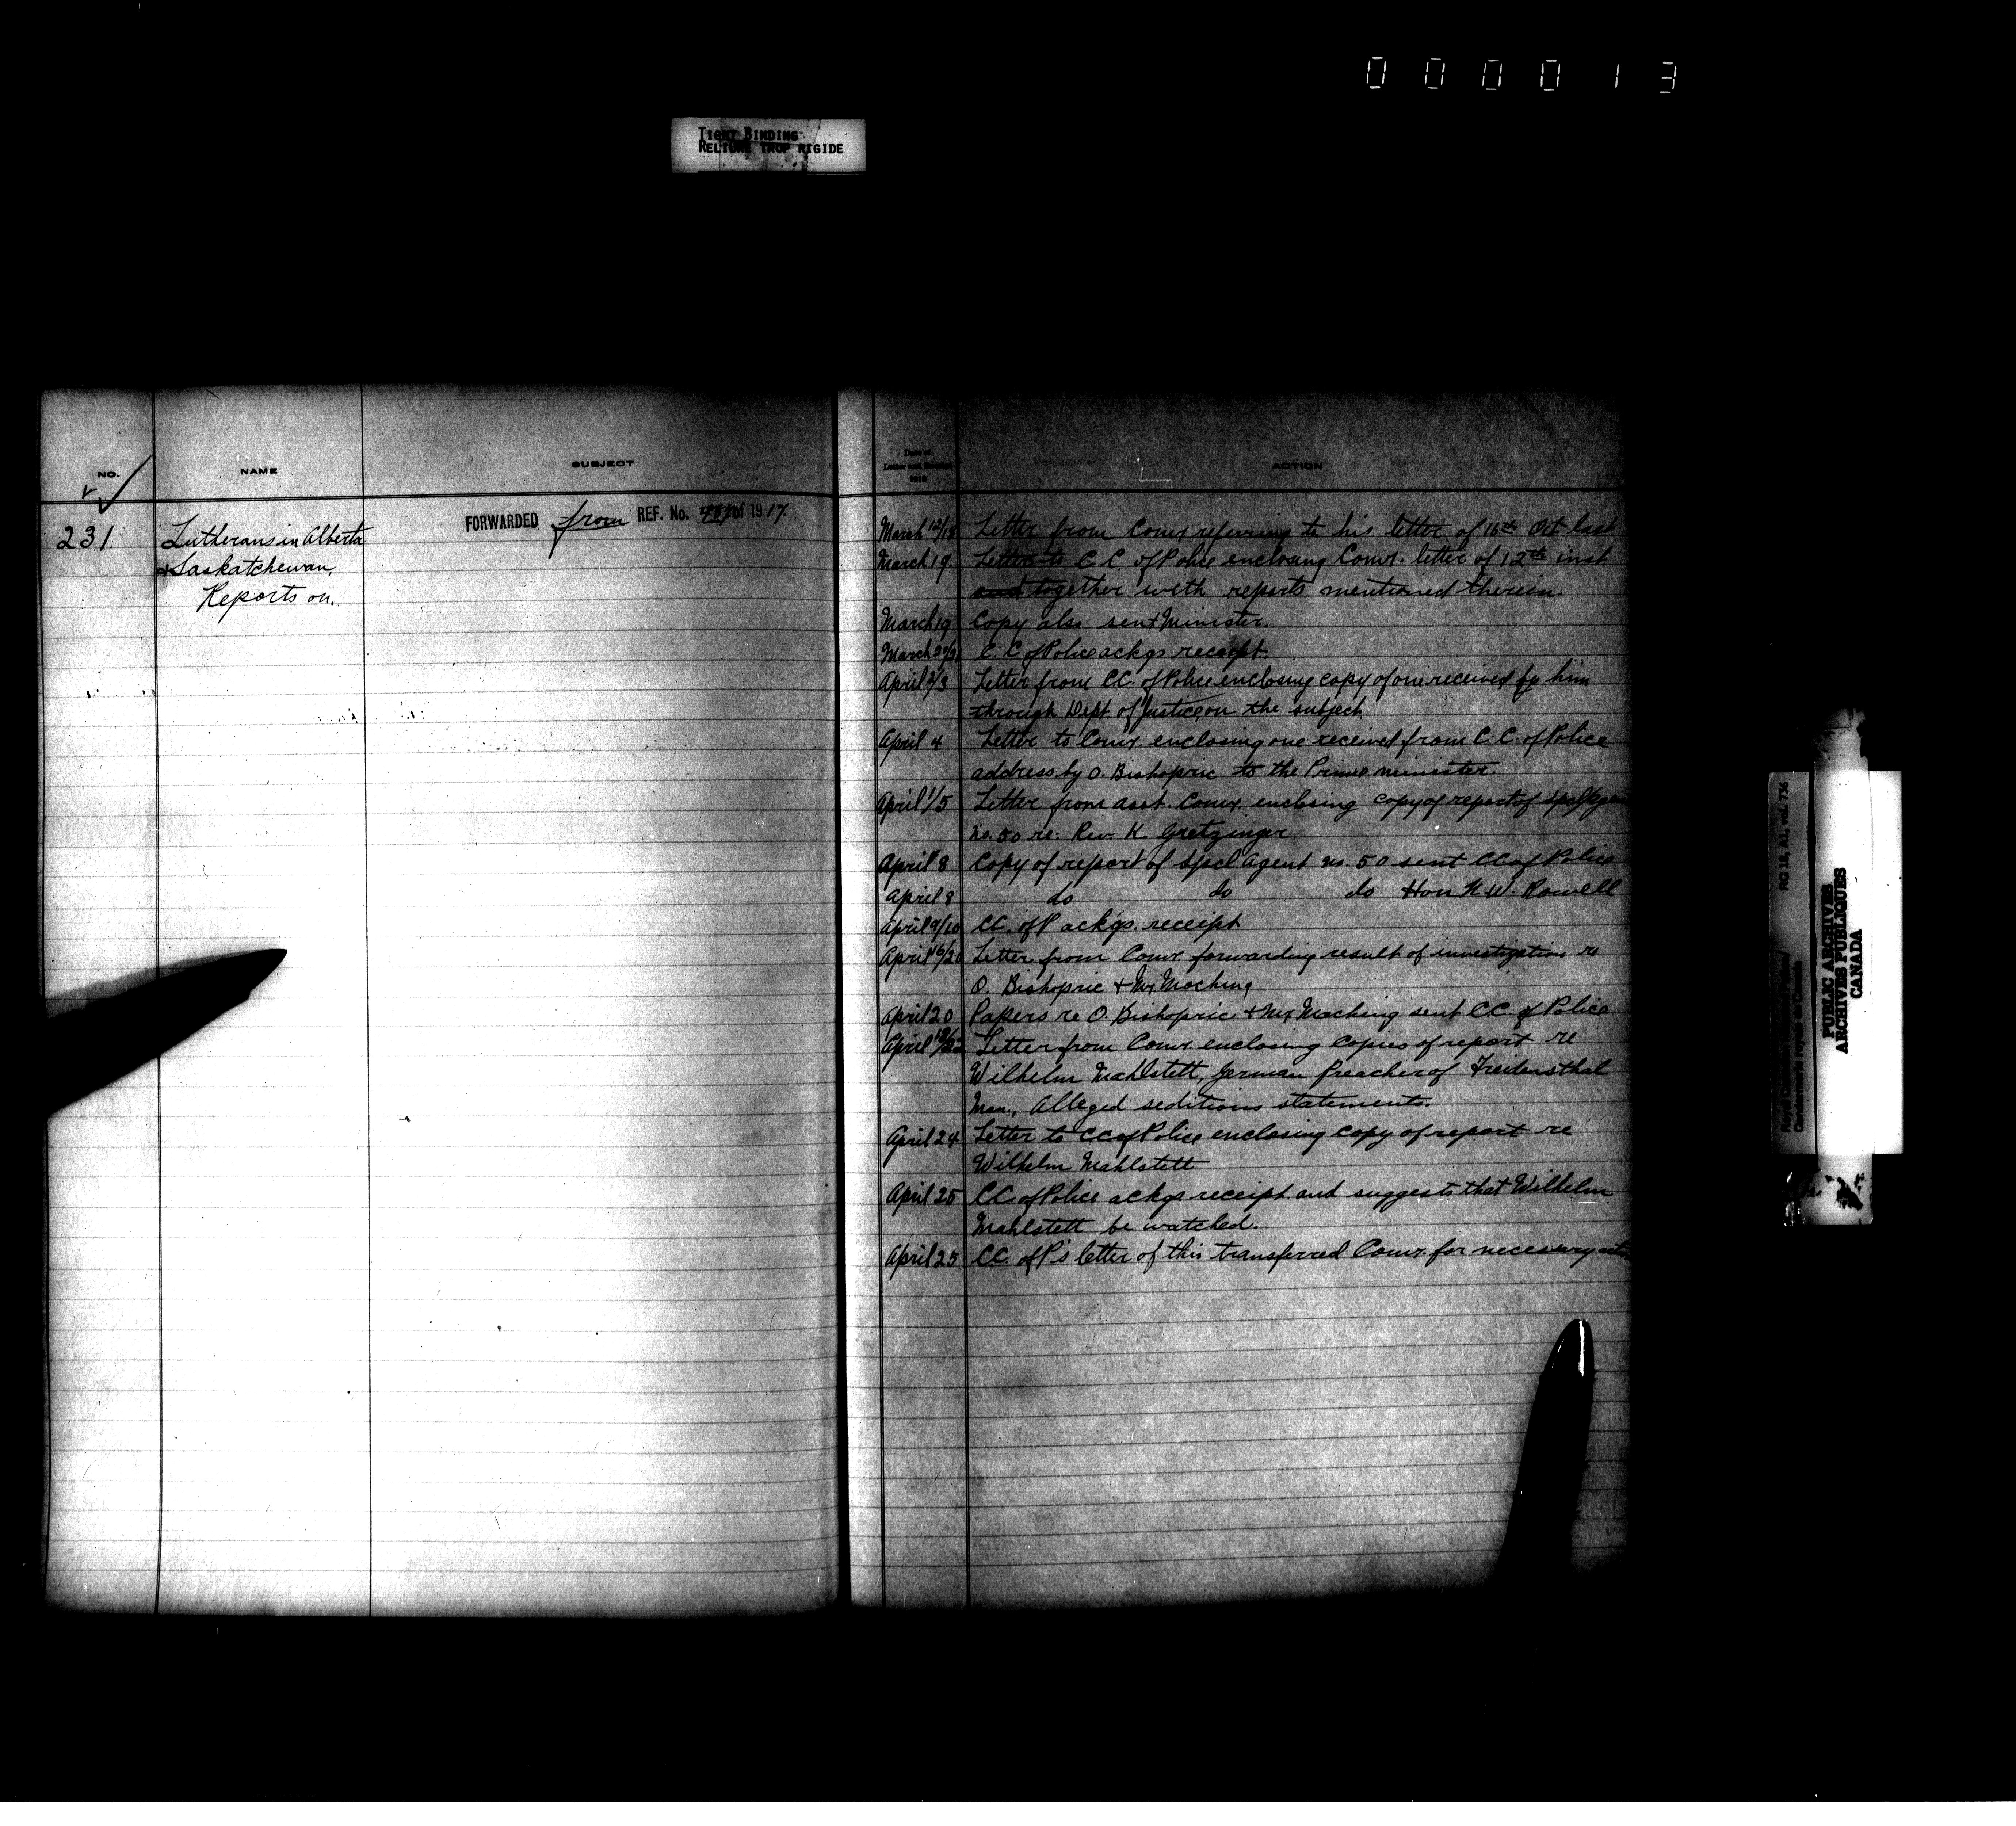 000013
TIGHT BINDING
RELIURE TROP RIGIDE
NO.
NAME
SUBJECT
Date of
Letter and
1918
ACTION
231
Lutherans in Alberta
& Saskatchewan,
Reports on.
FORWARDED from REF. No. of 1917
March 12/18 Letter from Comr. referring to his letter of 16th Oct last
March 19. Letter to C.C. of Police enclosing Comr. letter of 12th inst
and together with reports mentioned therein.
March 19 Copy also sent Minister.
March C.C. of Police ackgs receipt.
April 2/3 Letter from C.C. of Police enclosing copy of one received by him
through Dept. of Justice on the subject
April 4 Letter to Comr. enclosing one received from C.C. of Police
address by O. Bishopric to the Prime minister.
April 1/5 Letter from Asst. Comr. enclosing copy of report of Spcl Agent
No. 50 re: Rev. K. Gretzinger
April 8 Copy of report of Spcl Agent no. 50 sent CC of Police
April 8 do do do Hon N.W. Rowell
April 9/10 CC. of P ackgs. receipt
April 16/20 Letter from Comr. forwarding result of investigation re
O. Bishopric & Mr. Moching
April 20 Papers re O. Bishopric & Mr. Moching sent C.C. of Police
April Letter from Comr. enclosing copies of report re
Wilhelm Mahlstett, German Preacher of
Man., Alleged seditious statements.
April 24 Letter to CC of Police enclosing copy of report re
Wilhelm Mahlstett
April 25 CC. of Police ackgs receipt and suggests that Wilhelm
Mahlstett be watched.
April 25 CC. of P's letter of this transferred Comr. for necessary
RG 18, A1, vol. 736
Royal Canadian Mounted Police/
Gendarmerie royale du Canada
PUBLIC ARCHIVES
ARCHIVES PUBLIQUES
CANADA